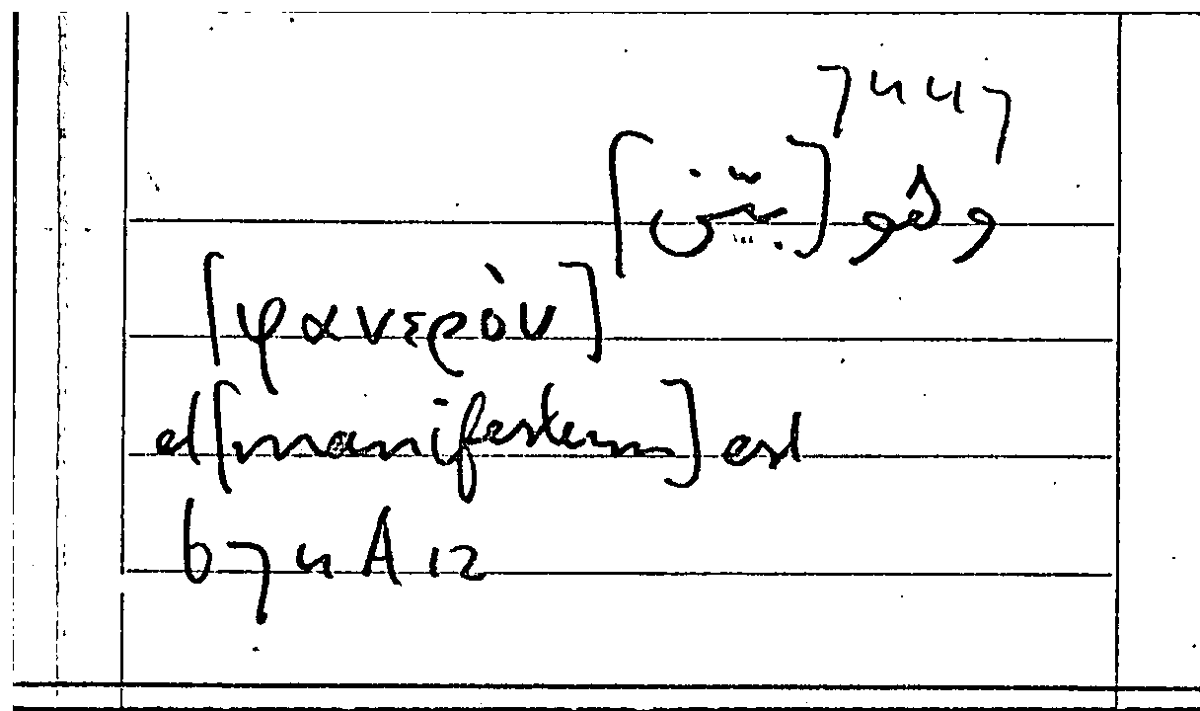 7447
وهو [بيّن]
[φανερὸν]
et [manifestum] est
674 A 12